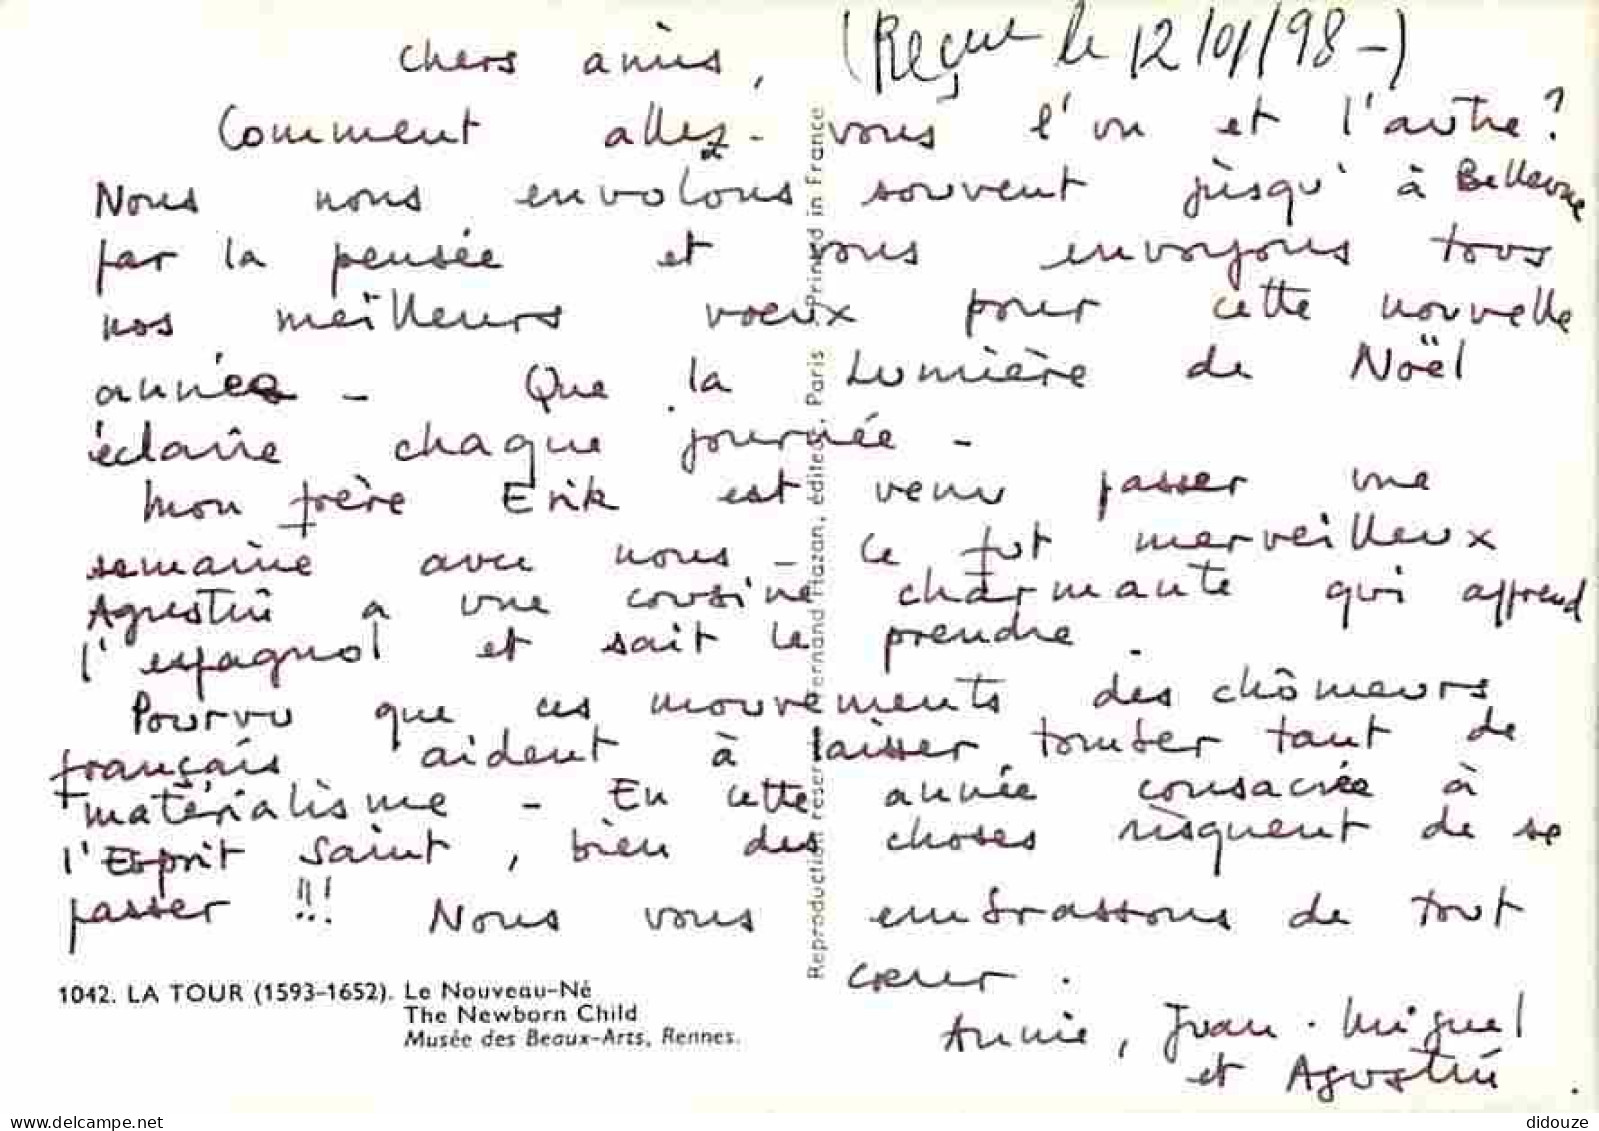 (Reçue le 12/01/98-)
Chers amis,
Comment allez-vous l'un et l'autre?
Nous nous envolons souvent jusqu'à Bellevue
par la pensée et vous envoyons tous
nos meilleurs voeux pour cette nouvelle
année - Que la Lumière de Noël
éclaire chaque journée -
Mon frère Erik est venu passer une
semaine avec nous - Ce fut merveilleux
Agustin a une cousine charmante qui apprend
l'espagnol et sait le prendre.
Pourvu que ces mouvements des chômeurs
français aident à laisser tomber tant de
matérialisme - En cette année consacrée à
l'Esprit Saint, bien des choses risquent de se
passer !!! Nous vous embrassons de tout
coeur.
Annie, Juan-Miguel
et Agustin.
1042. LA TOUR (1593-1652). Le Nouveau-Né
The Newborn Child
Musée des Beaux-Arts, Rennes.
Reproduction réservée Fernand Hazan, éditeur, Paris. Printed in France
www.delcampe.net
didouze